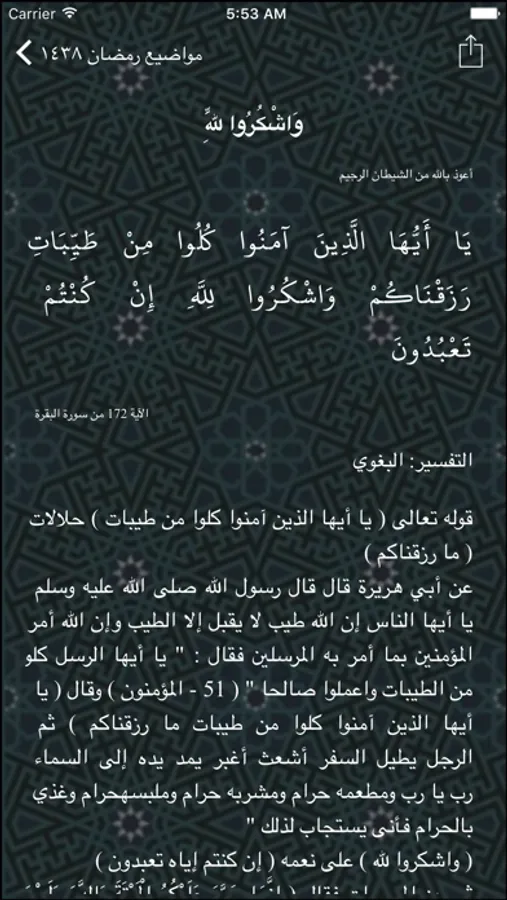 Carrier 5:53 AM
مواضيع رمضان ١٤٣٨
وَاشْكُرُوا لِلَّهِ
أعوذ بالله من الشيطان الرجيم
يَا أَيُّهَا الَّذِينَ آمَنُوا كُلُوا مِنْ طَيِّبَاتِ
رَزَقْنَاكُمْ وَاشْكُرُوا لِلَّهِ إِنْ كُنْتُمْ
تَعْبُدُونَ
الآية 172 من سورة البقرة
التفسير: البغوي
قوله تعالى ( يا أيها الذين آمنوا كلوا من طيبات ) حلالات
( ما رزقناكم )
عن أبي هريرة قال قال رسول الله صلى الله عليه وسلم
يا أيها الناس إن الله طيب لا يقبل إلا الطيب وإن الله أمر
المؤمنين بما أمر به المرسلين فقال : " يا أيها الرسل كلو
من الطيبات واعملوا صالحا " ( 51 - المؤمنون ) وقال ( يا
أيها الذين آمنوا كلوا من طيبات ما رزقناكم ) ثم
الرجل يطيل السفر أشعث أغبر يمد يده إلى السماء
رب يا رب ومطعمه حرام ومشربه حرام وملبسهحرام وغذي
بالحرام فأنى يستجاب لذلك "
( واشكروا لله ) على نعمه ( إن كنتم إياه تعبدون )